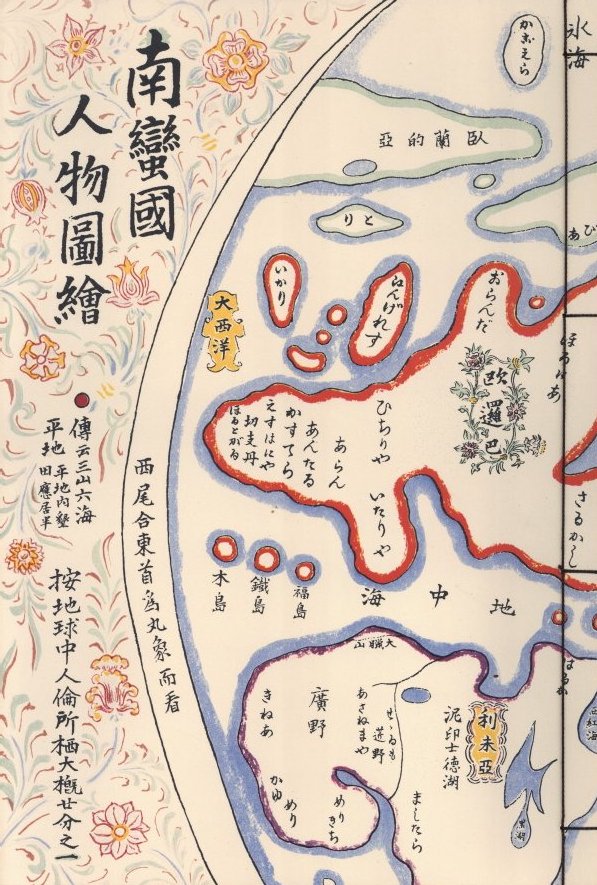 南蠻國
人物圖繪
傳云三山六海
平地 平地内墾
田應居半
按地球中人倫所栖大概廿分之一
西尾合東首為丸象而看
氷海
臥蘭的亞
とり
いかり
ゑんげれす
おらんだ
大西洋
歐邏巴
ひちりや
いたりや
あらん
あんたる
かすてら
えすはにや
切支丹
ほるとがる
さるかし
木島
鐵島
福島
地中海
大臘山
廣野
きねあ
かゆ
めり
めり
きち
あさねまや
泥印士德湖
利未亞
ましたら
黒湖
西紅海